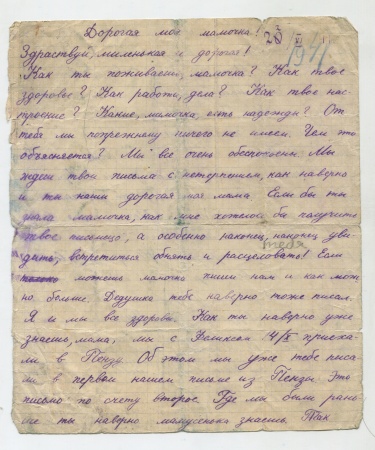 Дорогая моя мамочка! 28 XI 1941
Здравствуй, миленькая и дорогая!
Как ты поживаешь, мамочка? Как твое
здоровье? Как работа, дела? Как твое нас-
троение? Какие, мамочка, есть надежди? От
тебя ми попрежнему ничего не имеем. Чем это
объясняется? Ми все очень обеспокоены Мы
ждем твои письма с нетерпением, как наверно
и ти наши дорогая моя мама Если бы ты
знала мамочка, как мне хотелось би получить
твое письмецо, а особенно наконец, наконец уви
дить, встретиться обнять и расцеловать! тебя Если
только можешь мамочка пиши нам и как мож
но больше. Дедушка тебе наверно тоже писал.
Я и мы все здорови. Как ты наверно уже
знаешь, мама, мы с Феликсом 14/X приеха-
ли в Пензу. Об этом мы уже тебе писа-
ли в первом нашем письме из Пензы. Это
письмо по счету второе. Где ми были рань
ше ты наверно мамусенька знаешь. Так